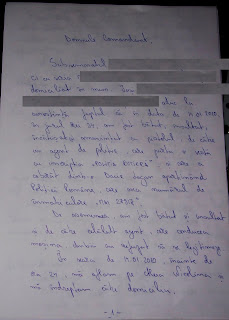 Domnule Comandant,
Subsemnatul
cu
domiciliat în
aduc la
cunoștință faptul că în data de 11.01.2020,
în jurul orei 24, am fost bătut, insultat,
încătușat, amenințat cu pistolul, de către
un agent de poliție, care purta o vestă
cu inscripția "POLIȚIA RUTIERĂ" și care a
coborât dintr-o Dacia Duster aparținând
Poliției Române, care avea numărul de
înmatriculare "MAI
De asemenea, am fost bătut și insultat
și de către celălalt agent, care conducea
mașina. Ambii au refuzat să se legitimeze.
În seara de 11.01.2020, înainte de
ora 24, mă aflam pe strada
mă îndreptam către domiciliu.
- 1 -